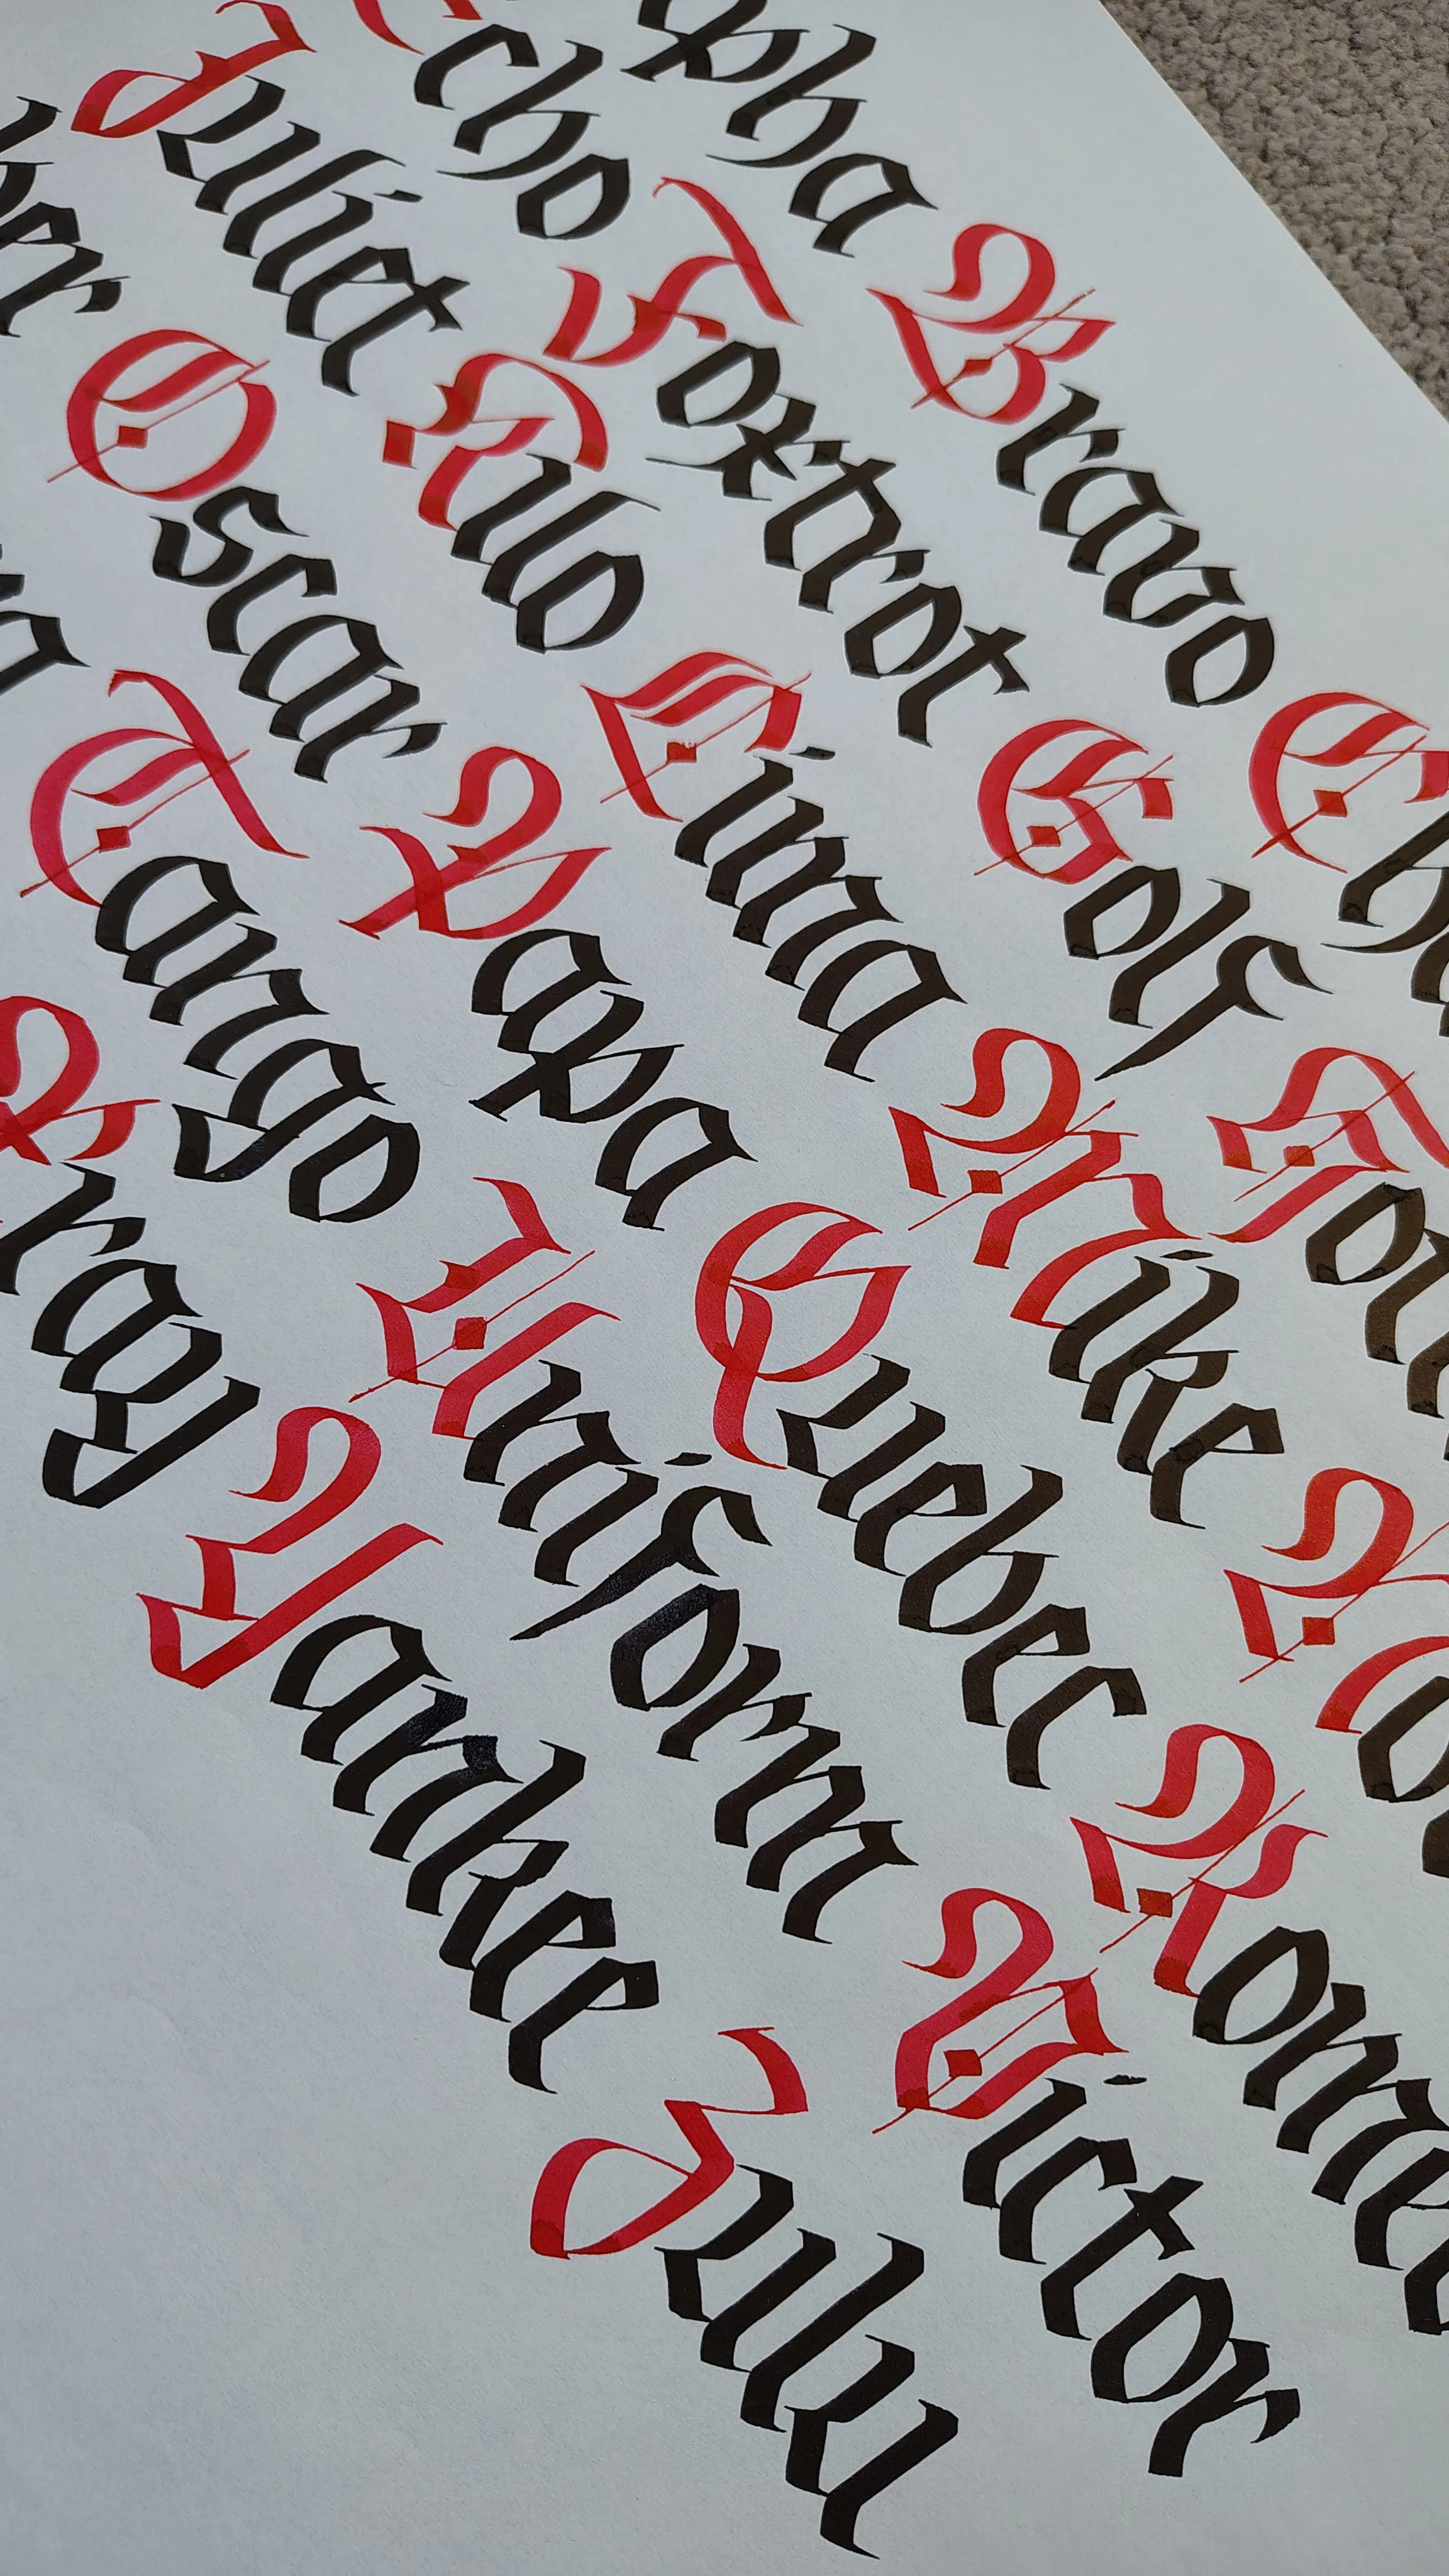 pha Bravo Ch
Echo Foxtrot Golf Hot
Juliet Kilo Lima Mike No
ber Oscar Papa Quebec Rome
a Tango Uniforn Victor
Xray Yankee Zulu